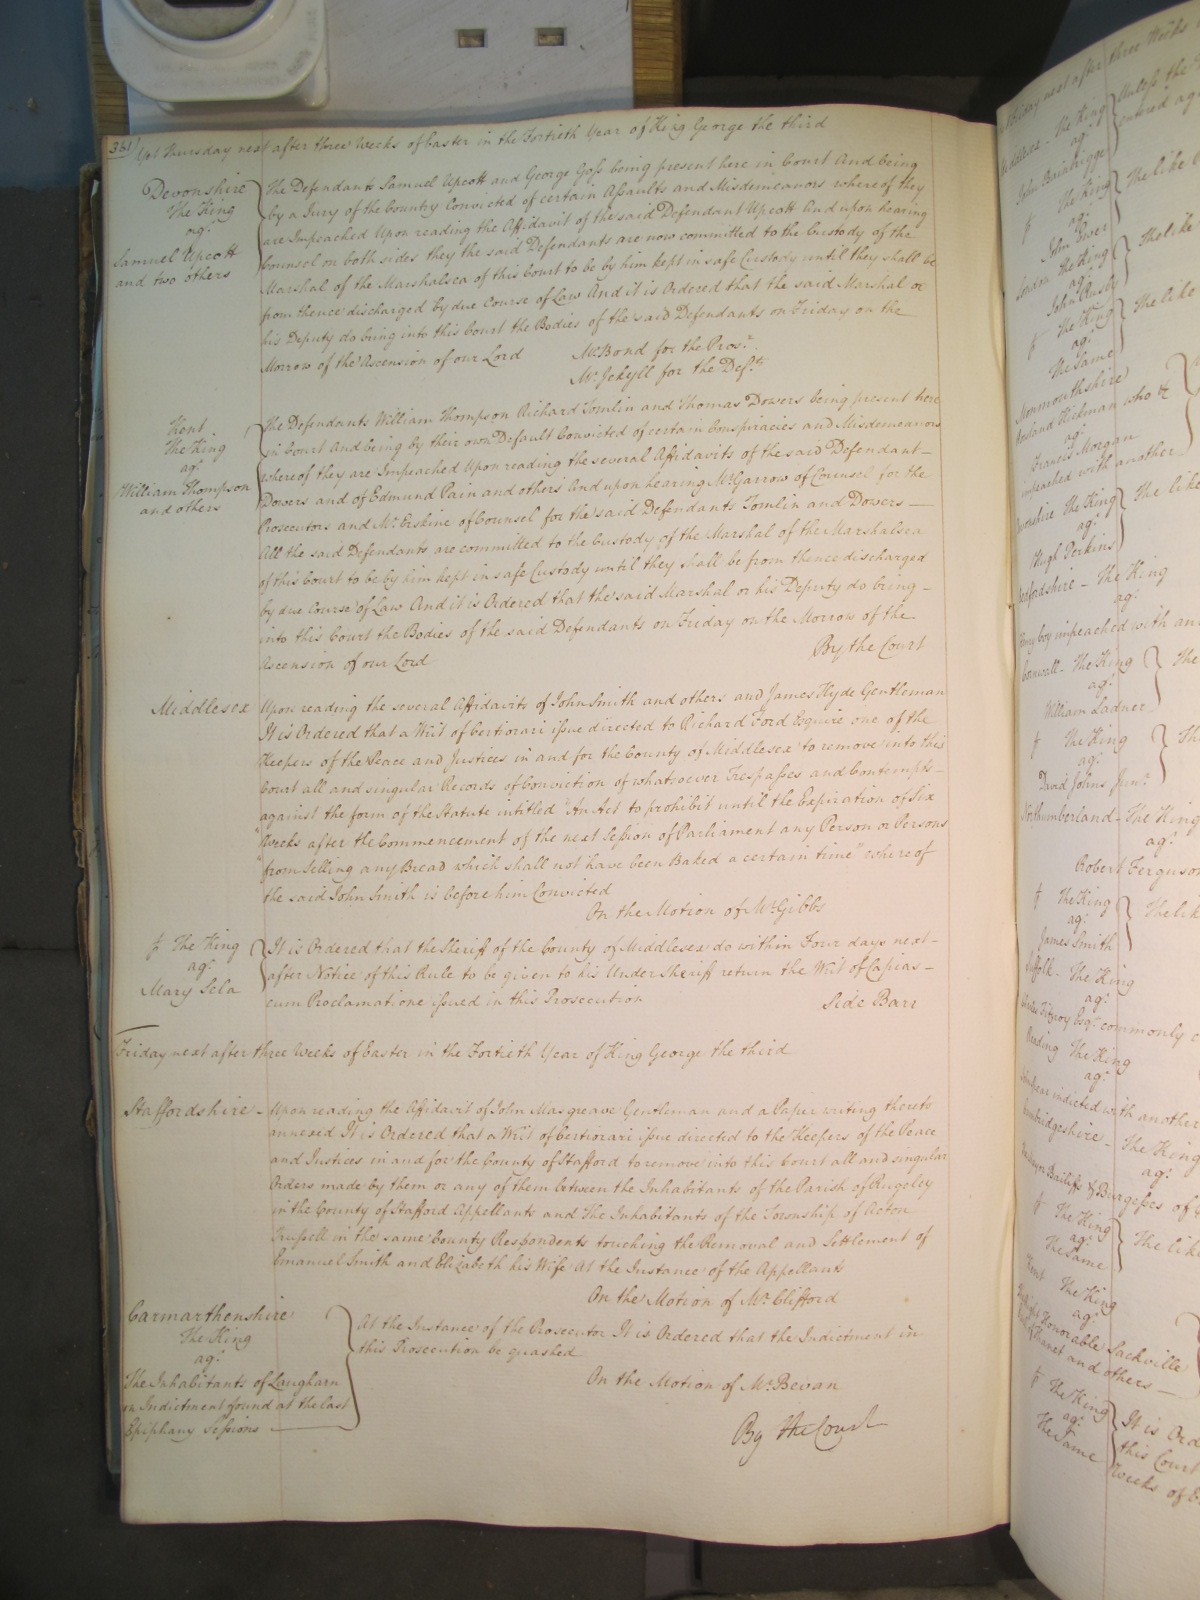 361) Yet Thursday next after three Weeks of Easter in the Fortieth Year of King George the third
Devonshire
The King
agt
Samuel Upcott
and two others
The Defendants Samuel Upcott and George Goss being present here in Court And being
by a Jury of the Country Convicted of certain Assaults and Misdemeanors whereof they
are Impeached Upon reading the Affidavit of the said Defendant Upcott And upon hearing
Counsel on both sides they the said Defendants are now committed to the Custody of the
Marshal of the Marshalsea of this Court to be by him kept in safe Custody until they shall be
from thence discharged by due Course of Law And it is Ordered that the said Marshal or
his Deputy do bring into this Court the Bodies of the said Defendants on Friday on the
Morrow of the Ascension of our Lord
Mr. Bond for the Prosr.
Mr. Jekyll for the Defts
Kent
The King
agt
William Thompson
and others
The Defendants William Thompson Richard Tomlin and Thomas Dowers being present here
in Court And being by their own Default Convicted of certain Conspiracies and Misdemeanors
whereof they are Impeached Upon reading the several Affidavits of the said Defendant
Dowers and of Edmund Pain and others And upon hearing Mr. Garrow of Counsel for the
Prosecutors and Mr. Erskine of Counsel for the said Defendants Tomlin and Dowers
All the said Defendants are committed to the Custody of the Marshal of the Marshalsea
of this Court to be by him kept in safe Custody until they shall be from thence discharged
by due Course of Law And it is Ordered that the said Marshal or his Deputy do bring
into this Court the Bodies of the said Defendants on Friday on the Morrow of the
Ascension of our Lord
By the Court
Middlesex
Upon reading the several Affidavits of John Smith and others and James Hyde Gentleman
It is Ordered that a Writ of Certiorari issue directed to Richard Ford Esquire one of the
Keepers of the Peace and Justices in and for the County of Middlesex to remove into this
Court all and singular Records of Conviction of whatsoever Trespasses and Contempts
against the form of the Statute intitled "An Act to prohibit until the Expiration of Six
"Weeks after the Commencement of the next Session of Parliament any Person or Persons
"from selling any Bread which shall not have been Baked a certain time" whereof
the said John Smith is before him Convicted
On the Motion of Mr. Gibbs
The King
agt
Mary Sela
It is Ordered that the Sheriff of the County of Middlesex do within Four days next
after Notice of this Rule to be given to his Under Sheriff return the Writ of Capias
cum Proclamatione issued in this Prosecution
Side Barr
Friday next after three Weeks of Easter in the Fortieth Year of King George the third
Staffordshire
Upon reading the Affidavit of John Masgreave Gentleman and a Paper writing thereto
annexed It is Ordered that a Writ of Certiorari issue directed to the Keepers of the Peace
and Justices in and for the County of Stafford to remove into this Court all and singular
Orders made by them or any of them between the Inhabitants of the Parish of Rugeley
in the County of Stafford Appellants and The Inhabitants of the Township of Acton
Trussell in the same County Respondents touching the Removal and Settlement of
Emanuel Smith and Elizabeth his Wife At the Instance of the Appellants
On the Motion of Mr. Clifford
Carmarthenshire
The King
agt
The Inhabitants of Laugharn
on Indictment found at the last
Epiphany Sessions
At the Instance of the Prosecutor It is Ordered that the Indictment in
this Prosecution be quashed
On the Motion of Mr. Bevan
By the Court
next after three Weeks
The King
agt
John Bainbrigge
Unless the
entered
The King
agt
John Biver
The like
London The King
agt
John Rusby
The like
The King
agt
The Same
The like
Monmouthshire
Rosland Hickman who &c
agt
Francis Morgan
impeached with another
The King
agt
Hugh Perkins
The like
The King
agt
impeached with
Cornwall - The King
agt
William Ladner
The
The King
agt
David Johns Junr
Northumberland - The King
agt
Robert Ferguson
The King
agt
James Smith
The like
Suffolk - The King
agt
Fitzroy Esqr. commonly
Reading The King
agt
indicted with another
Cambridgeshire - The King
agt
Bailiffs & Burgesses of
The King
agt
The Same
The like
Kent The King
agt
Honorable Sackville
Thanet and others
The King
agt
The Same
It is
this Court
Weeks of